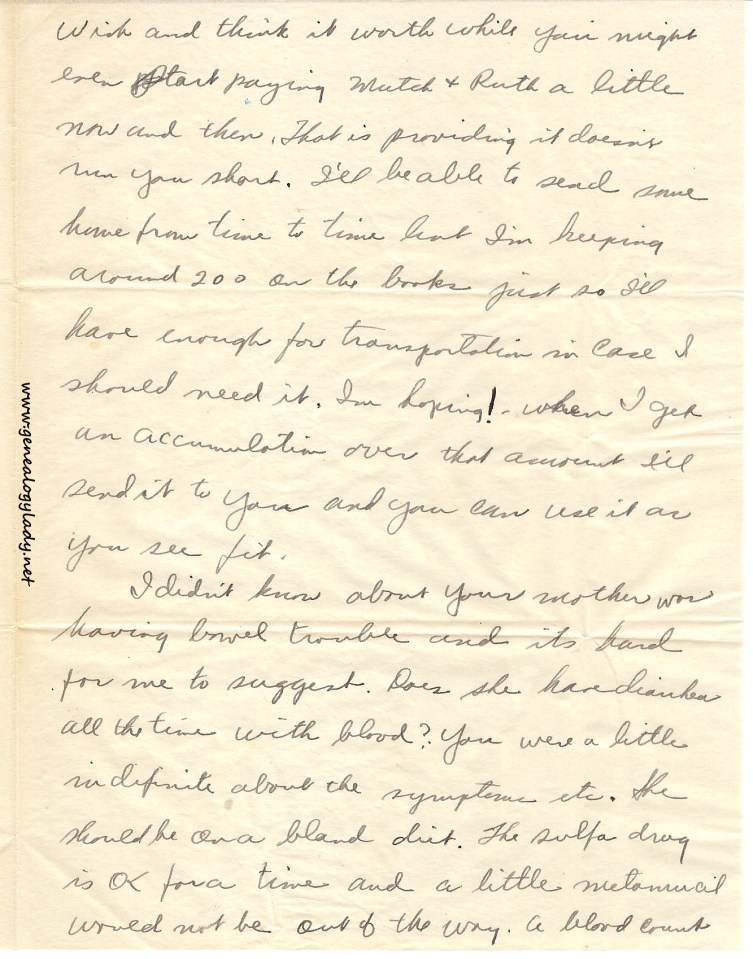 wish and think it worth while you might
even start paying Mutch & Ruth a little
now and then. That is providing it doesn't
run you short. I'll be able to send some
home from time to time but I'm keeping
around 200 on the books just so I'll
have enough for transportation in case I
should need it. Im hoping! - when I get
an accumulation over that amount I'll
send it to you and you can use it as
you see fit.
I didn't know about your mother was
having bowel trouble and its hard
for me to suggest. Does she have diarrhea
all the time with blood? You were a little
indefinite about the symptoms etc. She
should be on a bland diet. The sulfa drug
is OK for a time and a little metamucil
would not be out of the way. A blood count
www.genealogylady.net